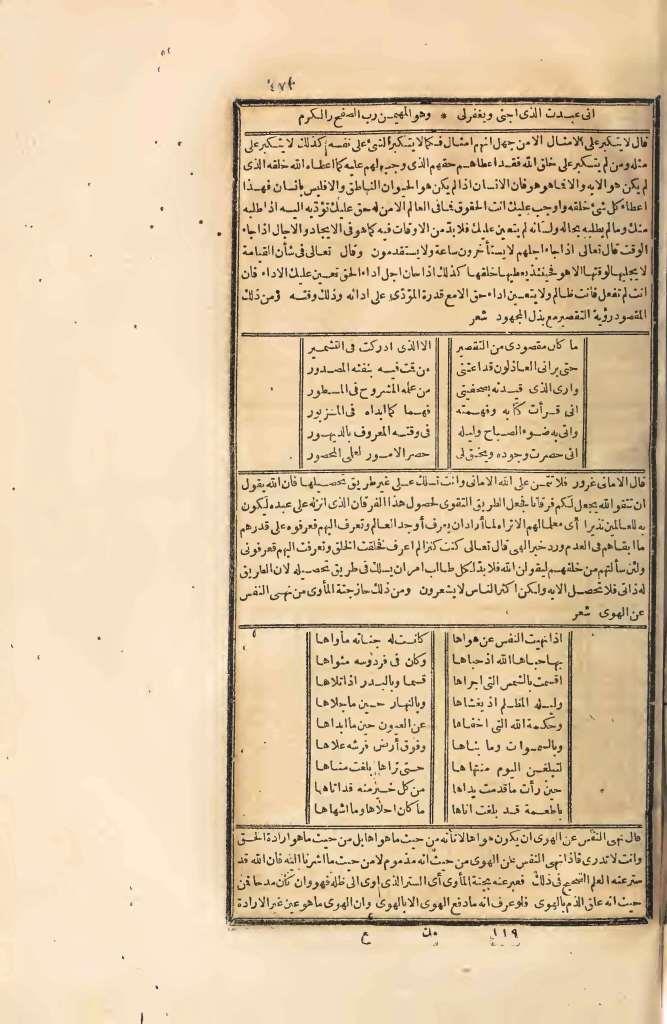 ٤٧٢
انى عبدت الذى اجتى ويغفرلى * وهو المهيمن رب الصفح والكرم
قال لا يتكبر على الامثال الا من جهل انهم امثال فكما لا يتكبر الشئ على نفسه كذلك لا يتكبر على
مثله ومن لم يتكبر على خلق الله فقد اعطاهم حقهم الذى وجب لهم عليه كما اعطاه الله خلقه الذى
لم يكن هو الا به والا فما هو هو فان الانسان اذا لم يكن هو الحيوان الناطق والا فليس بانسان فهذا
اعطاء كل شئ خلقه واوجب عليك انت الحقوق فما فى العالم الا من له حق عليك تؤدّيه اليه اذا طلبه
منك ومالم يطلبه بحاله ولسانه لم يتعين عليك فلا بدّ من الاوقات فيه كما هو فى الايجاد والاجال اذا جاء
الوقت قال تعالى اذا جاء اجلهم لا يستأخرون ساعة ولا يستقدمون وقال تعالى فى شأن القيامة
لا يجليها لوقتها الا هو فحينئذ يعطيها خلقها كذلك اذا حان اجل اداء الحق تعين عليك الاداء فان
انت لم تفعل فانت ظالم ولا يتعين اداء حق الا مع قدرة المؤدّى على ادائه وذلك وقته ومن ذلك
المقصود رؤية التقصير مع بذل المجهود شعر
ما كان مقصودى من التقصير الا الذى ادركت فى التشمير
حتى يرانى العاذلون قد اعتنى من قت فيه بنفثه المصدور
وارى الذى قيدته بصحيفتى من عمله المشروح فى المسطور
انى قرأت كتابه وفهمته فهما كما ابداه فى المزبور
واتى به ضوء الصباح وليله فى وقته المعروف بالديهور
انى حصرت وجوده ويحق لى حصر الامور لعلى المحصور
قال الامانى غرور فلا تتمن على الله الامانى وانت تسلك على غير طريق يحصيلها فان الله يقول
ان تتقوا الله يجعل لكم فرقانا فجعل الطريق التقوى لحصول هذا الفرقان الذى انزله على عبده ليكون
به للعالمين نذيرا أى معلما لهم الا تراه لما أراد ان يعرف أوجد العالم وتعرف اليهم فعرفوه على قدرهم
ما ابقاهم فى العدم ورد خبر الهى قال تعالى كنت كنزا لم اعرف فخلقت الخلق وتعرفت اليهم فعرفونى
ولئن سألتهم من خلقهم ليقولن الله فلا بدّ لكل طالب امر ان يسلك فى طريق تحصيله لان الطريق
له ذاتى فلا تحصل الا به ولكن اكثر الناس لا يشعرون ومن ذلك حاز جنة المأوى من نهى النفس
عن الهوى شعر
اذا نهيت النفس عن هواها كانت له جناته مأواها
بها حباها الله اذ حباها وكان فى فردوسه مثواها
اقسمت بالشمس التى اجراها قسما وبالبدر اذا تلاها
وليله المظلم اذ يغشاها وبالنهار حين ما جلاها
وحكمة الله التى اخفاها عن العيون حين ما ابداها
وبالسموات وما بناها وفوق أرض فرشه علاها
لتبلغن اليوم منتهاها حتى تراها بلغت مناها
حين رأت ما قدمت يداها من كل خير منه قد اتاها
باطعمة قد بلغت اناها ما كان احلاها وما اشهاها
قال نهى النفس عن الهوى ان يكون هواها لا تأنه من حيث ما هو هواها بل من حيث ما هو ارادة الحق
وانت لا تدرى فاذا نهى النفس عن الهوى من حيث انه مذموم لا من حيث ما اشرنا اليه فان الله قد
ستر عنه العلم الصحيح فى ذلك فعبر عنه بجنة المأوى أى الستر الذى اوى الى ظله فهو وان كان مدحا فمن
حيث انه علق الذم بالهوى فلو عرف انه ما دفع الهوى الا بالهوى وان الهوى ما هو عين غير الارادة
١١٩ مك ع